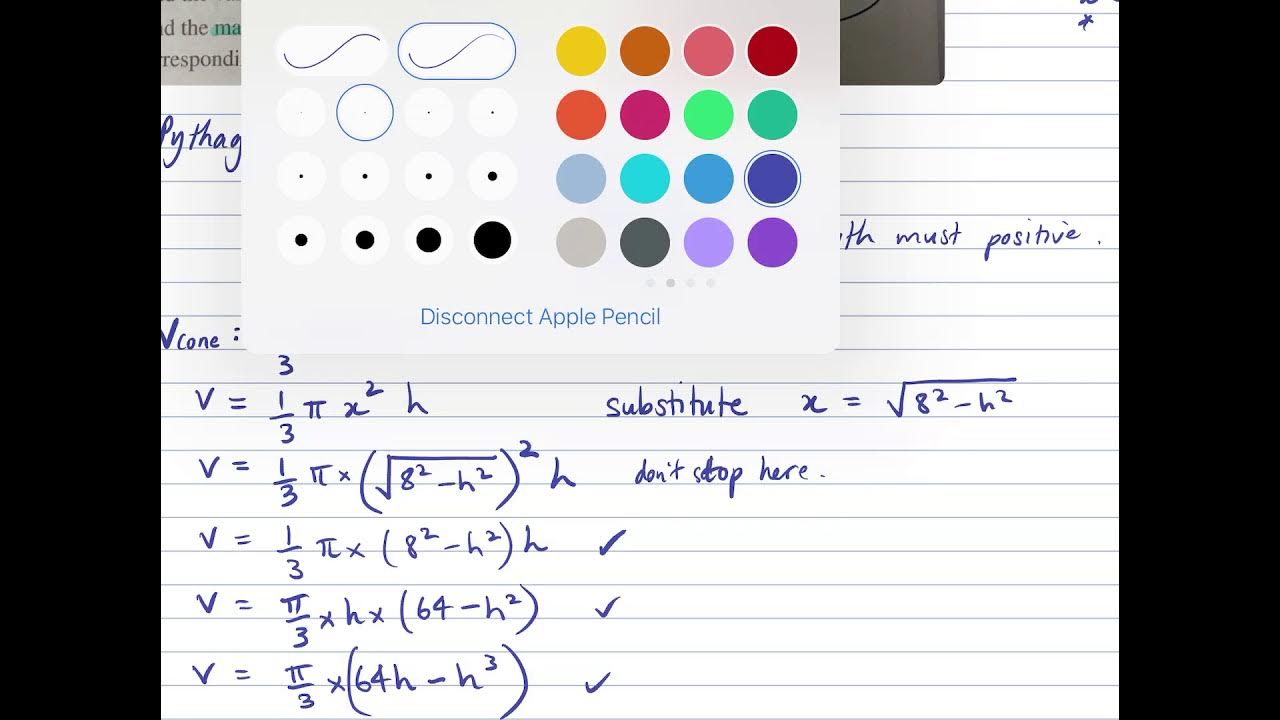 nd the ma
rrespondi
*
Pythag
th must positive.
Disconnect Apple Pencil
Vcone :
3
V = 1/3 π x² h substitute x = √(8² − h²)
V = 1/3 π × (√(8² − h²))² h don't stop here.
V = 1/3 π × (8² − h²) h ✓
V = π/3 × h × (64 − h²) ✓
V = π/3 × (64h − h³) ✓